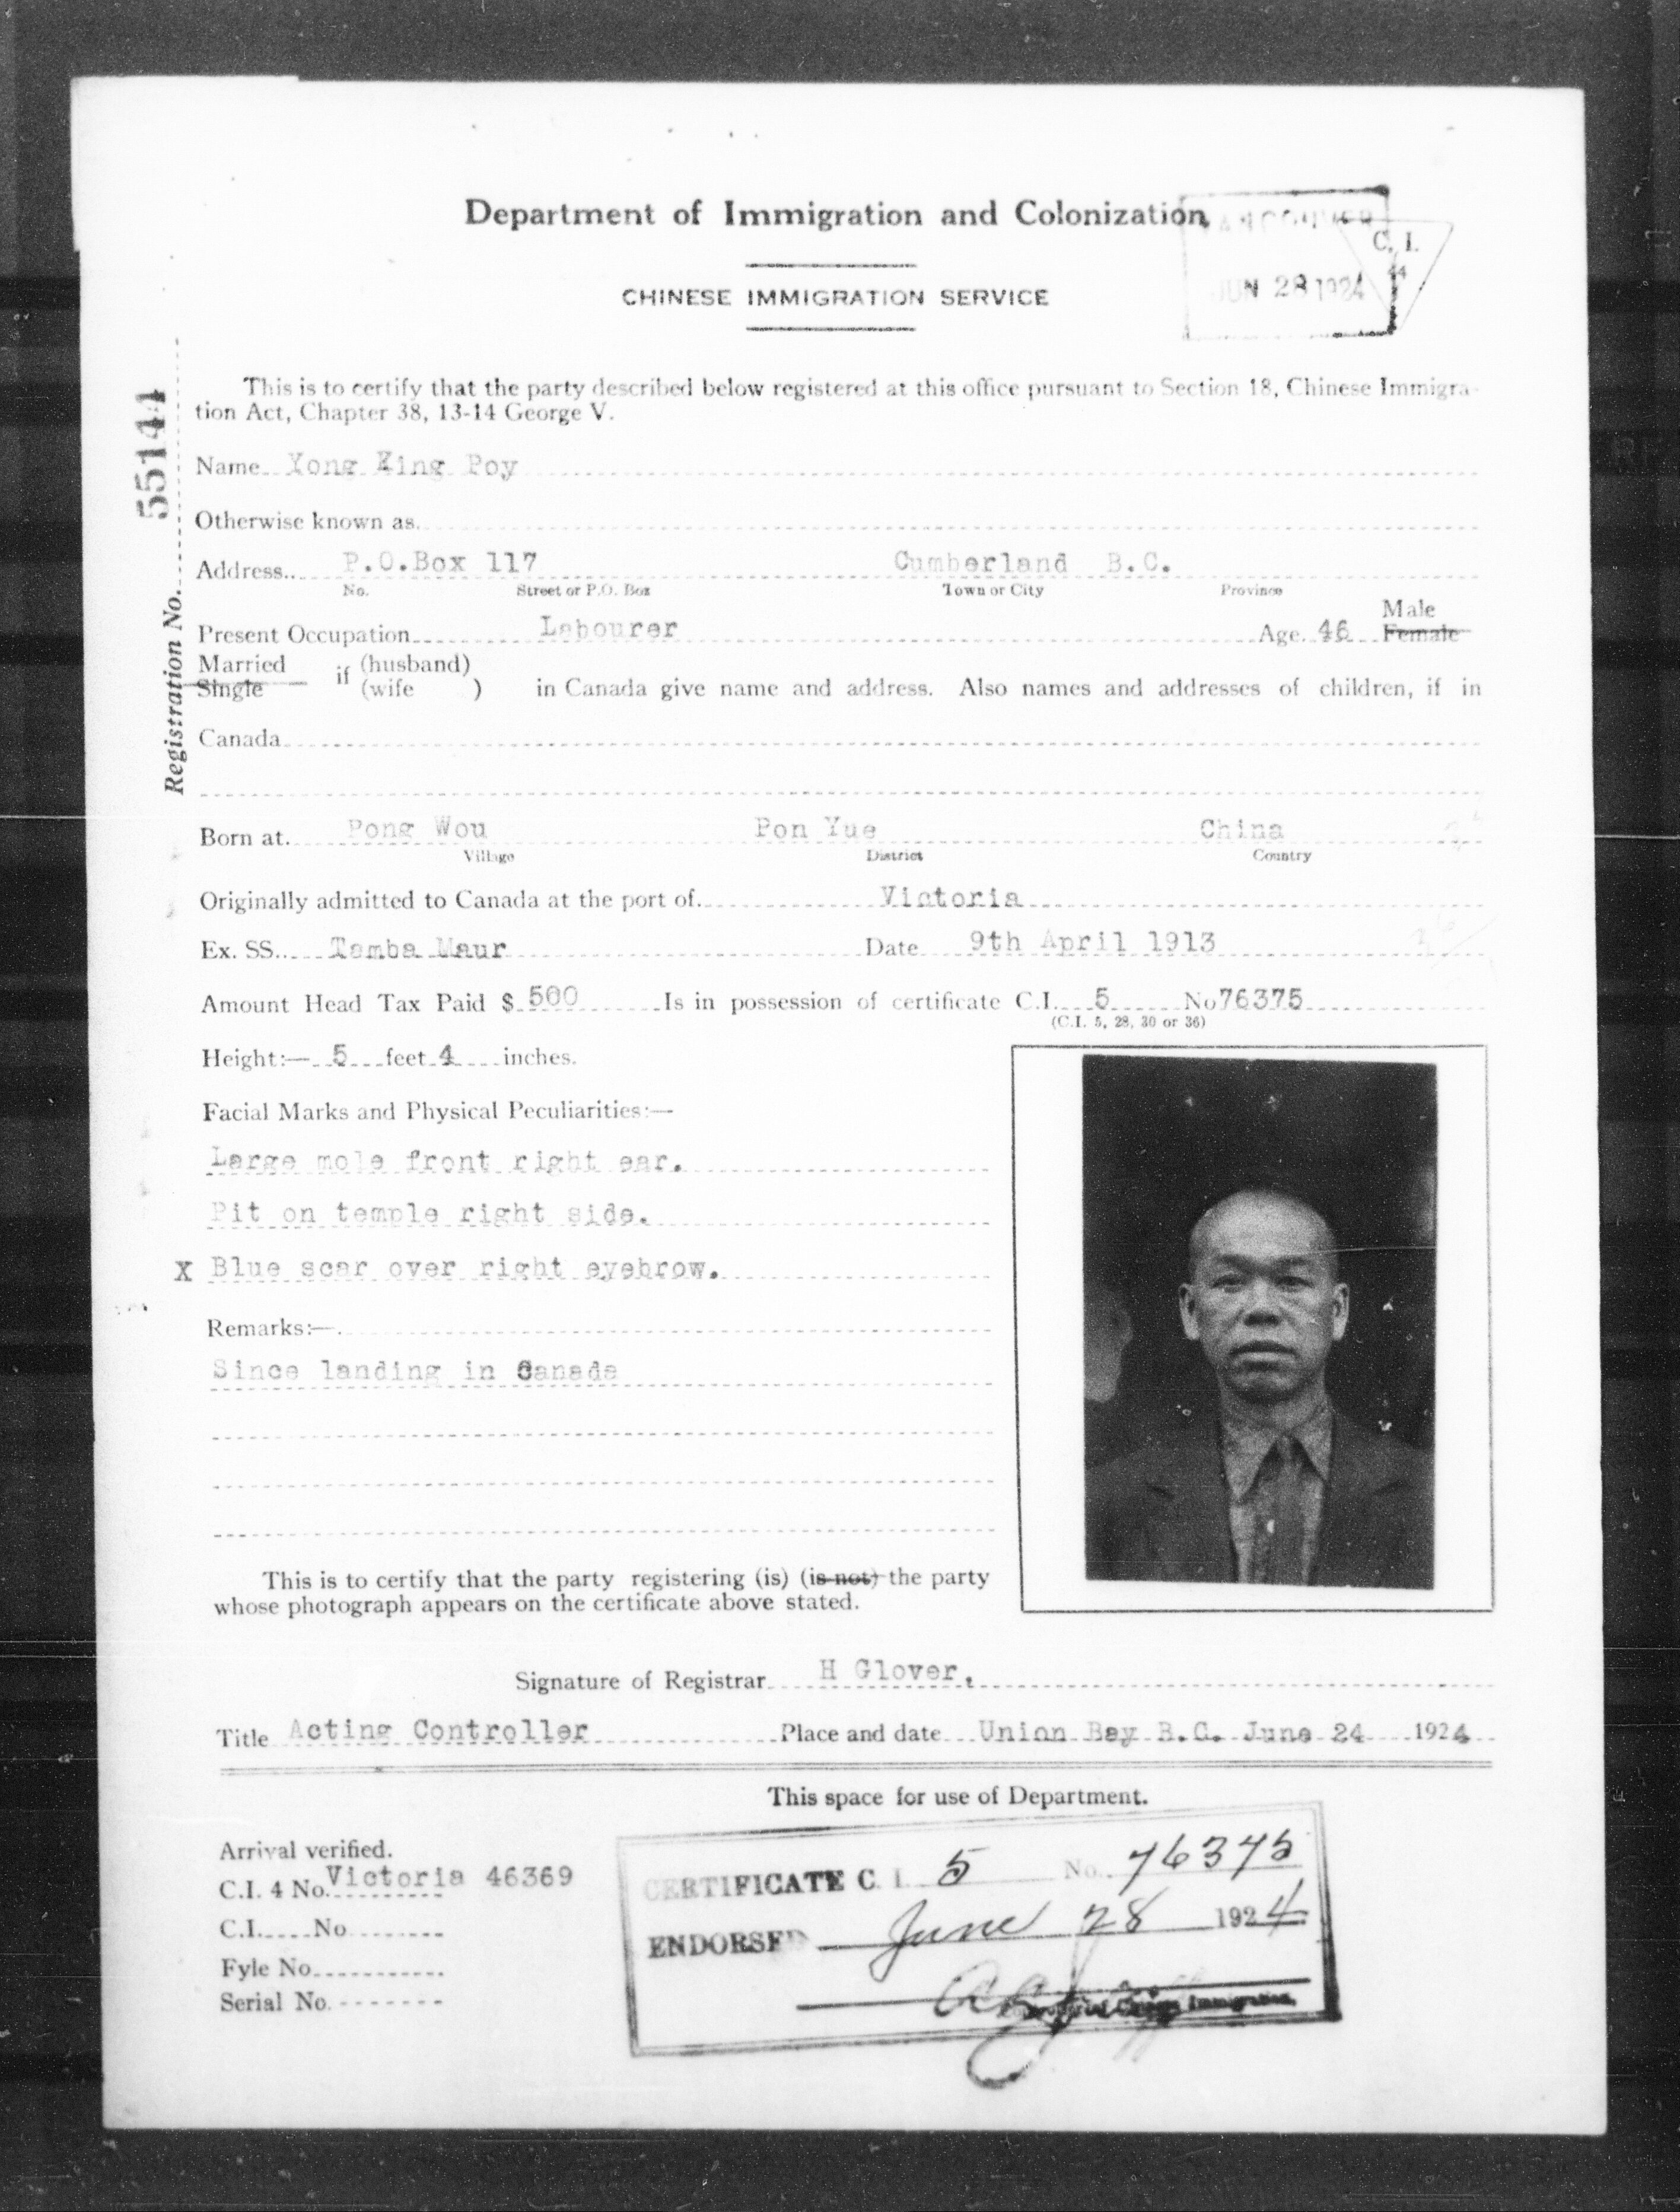 Department of Immigration and Colonization
VANCOUVER
C. I.
44
JUN 28 1924
CHINESE IMMIGRATION SERVICE
This is to certify that the party described below registered at this office pursuant to Section 18, Chinese Immigra-
tion Act, Chapter 38, 13-14 George V.
Registration No. 55144
Name Yong King Poy
Otherwise known as
Address P.O.Box 117 Cumberland B.C.
No. Street or P.O. Box Town or City Province
Present Occupation Labourer Age 46 Male Female
Married
Single if (husband)
(wife ) in Canada give name and address. Also names and addresses of children, if in
Canada
Born at Pong Wou Pon Yue China
Village District Country
Originally admitted to Canada at the port of Victoria
Ex. SS. Tamba Maur Date 9th April 1913
Amount Head Tax Paid $ 500 Is in possession of certificate C.I. 5 No 76375
(C.I. 5, 28, 30 or 36)
Height:— 5 feet 4 inches.
Facial Marks and Physical Peculiarities:—
Large mole front right ear.
Pit on temple right side.
X Blue scar over right eyebrow.
Remarks:—
Since landing in Canada
This is to certify that the party registering (is) (is not) the party
whose photograph appears on the certificate above stated.
Signature of Registrar H Glover.
Title Acting Controller Place and date Union Bay B.C. June 24 1924
This space for use of Department.
Arrival verified.
C.I. 4 No. Victoria 46369
C.I. No
Fyle No.
Serial No.
CERTIFICATE C. I. 5 No. 76375
ENDORSED June 28 1924
Chinese Immigration.